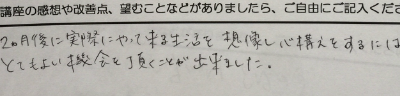 講座の感想や改善点、望むことなどがありましたら、ご自由にご記入くださ
2ヵ月後に実際にやって来る生活を想像し心構えをするには
とてもよい機会を頂くことが出来ました。